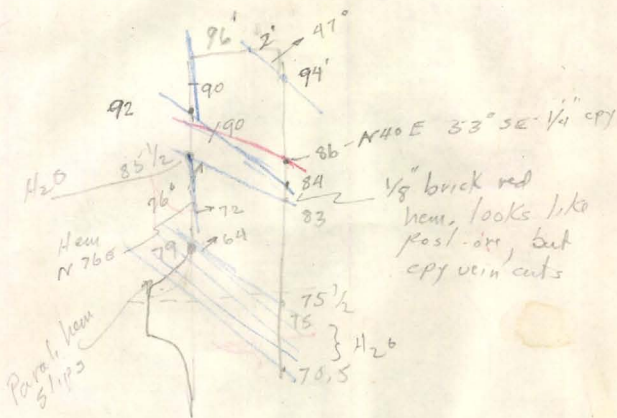 96'
2'
47°
94'
90
92
90
86 - N40E 53° SE - 1/4" cpy
H2O
85 1/2
84
83
1/8" brick red
hem. looks like
post-ore, but
cpy vein cuts
76°
72
Hem
N 76E
79
64
75 1/2
75
} H2O
70.5
Paral. hem
slips